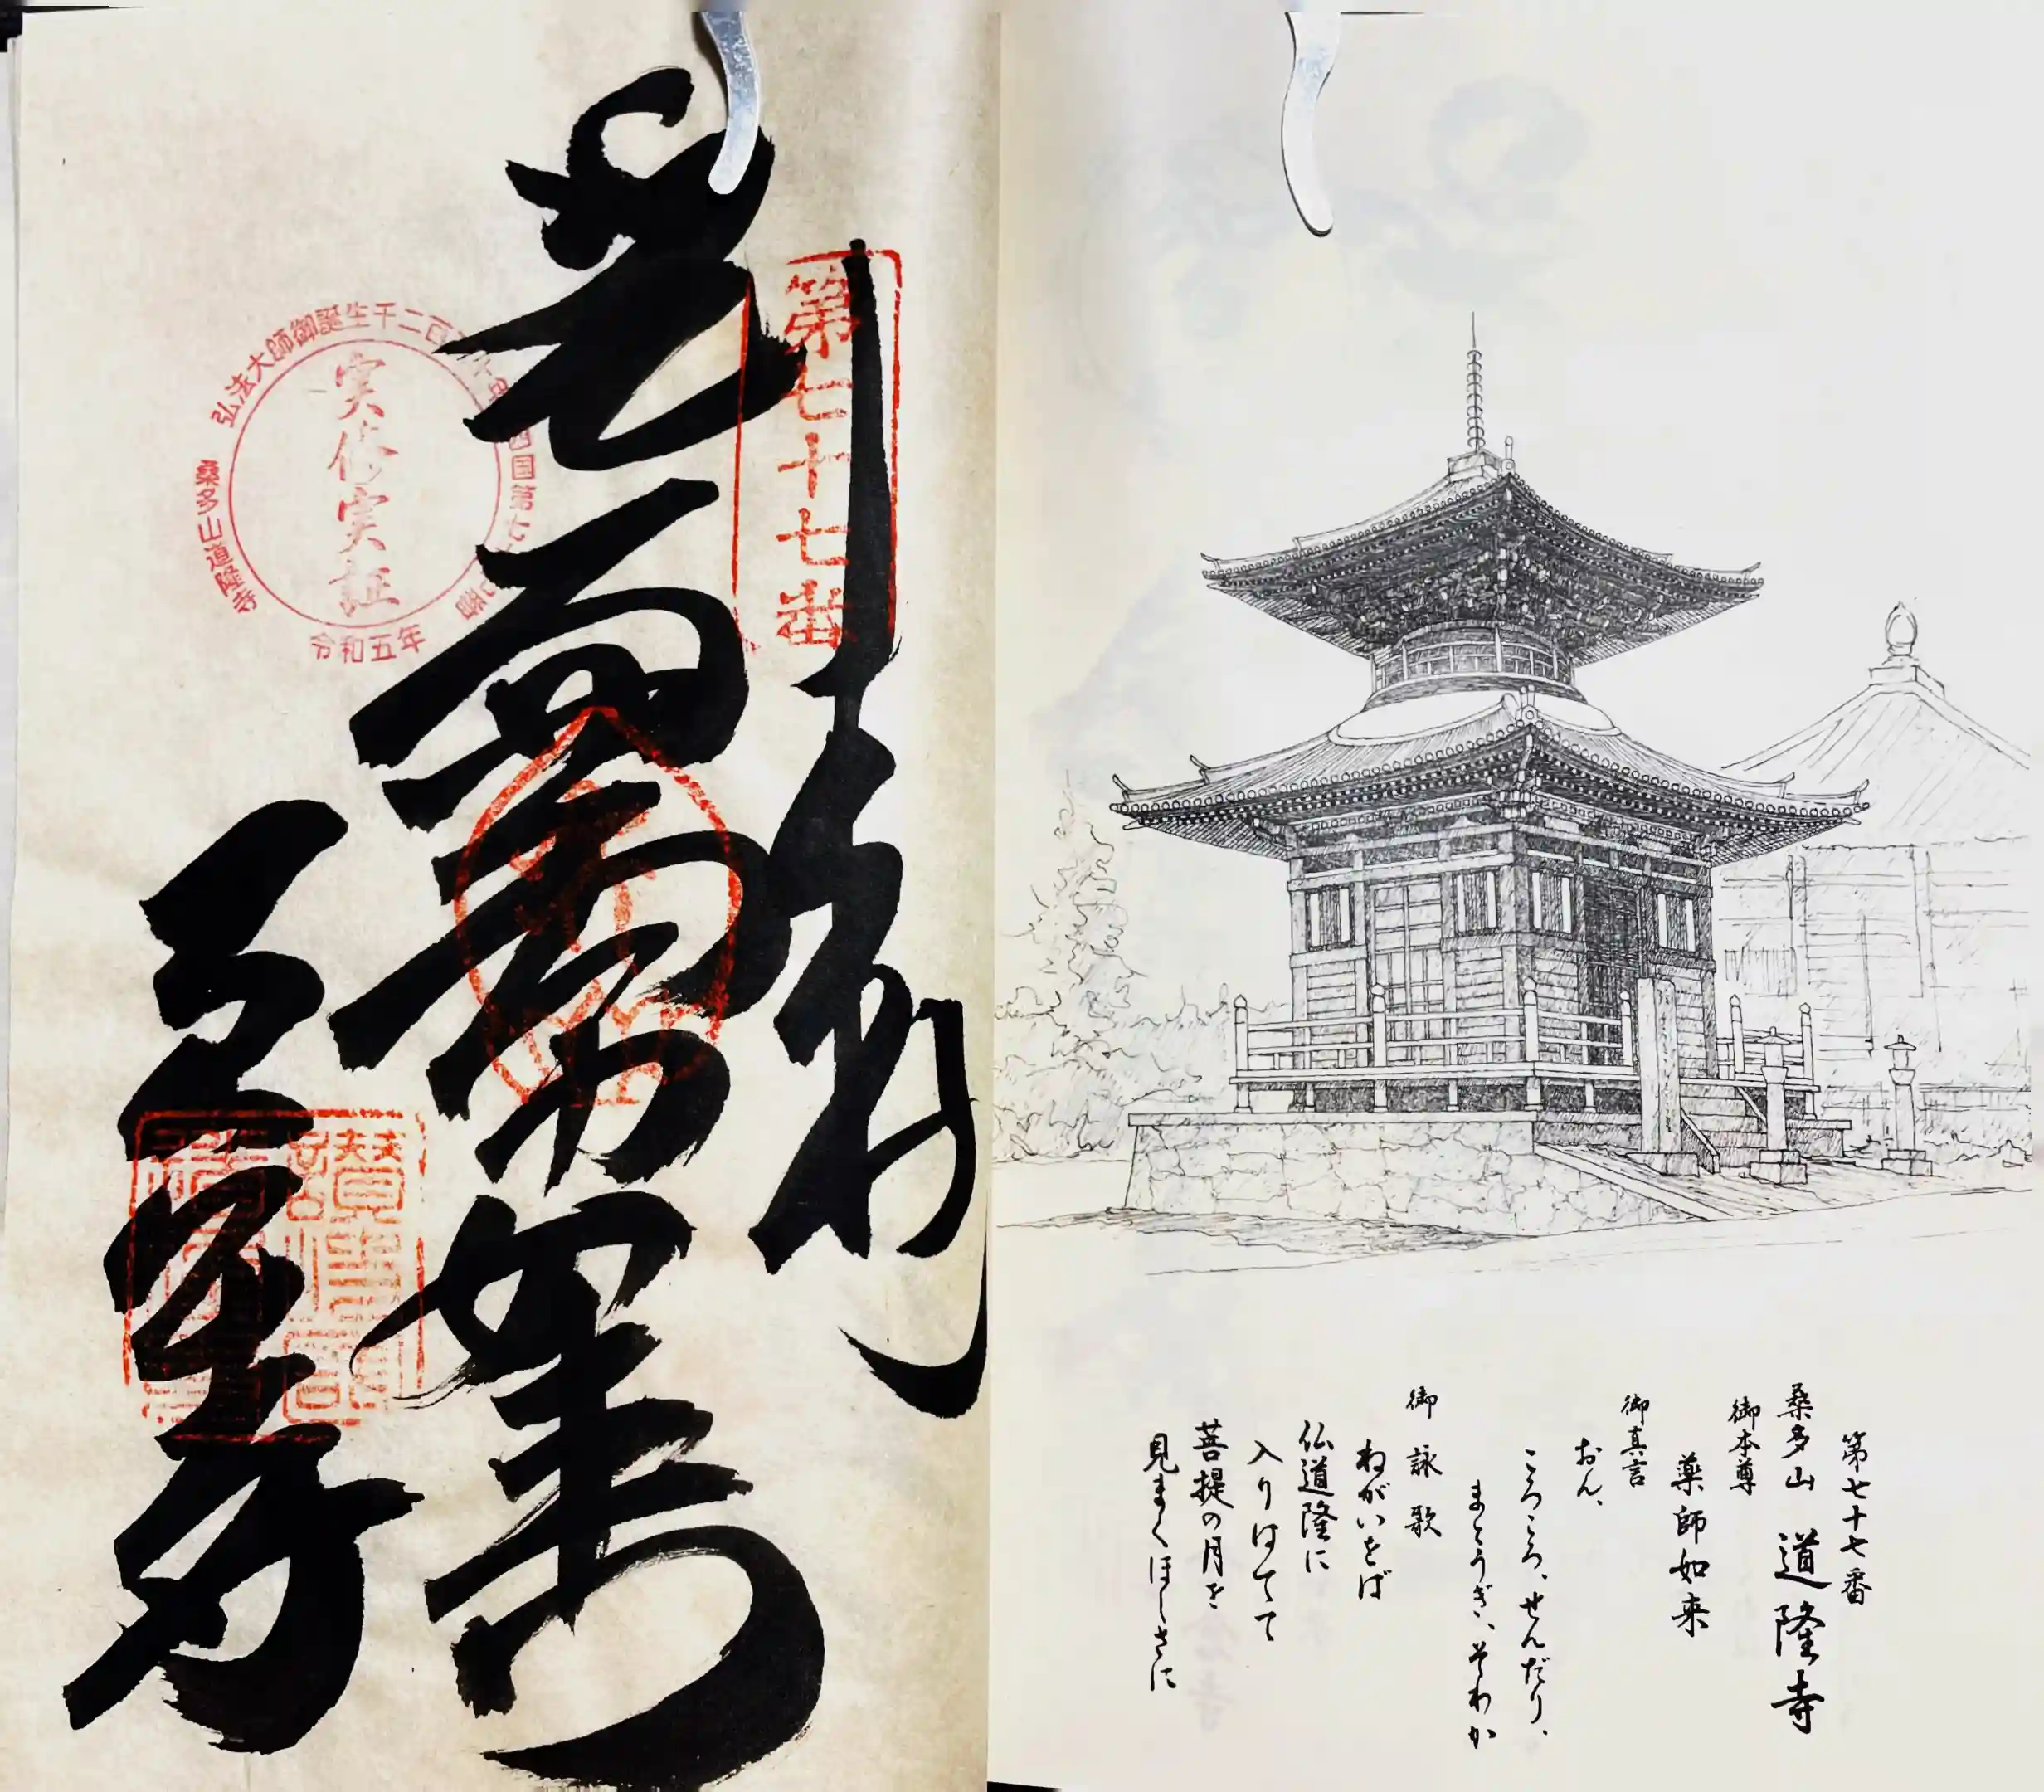 第七十七番
桑多山 道隆寺
御本尊
薬師如来
御真言
おん、
ころころ、せんだり、
まとうぎ、そわか
御詠歌
ねがいをば
仏道隆に
入りはてて
菩提の月を
見まくほしさに
奉納
第七十七番
薬師如来
道隆寺
弘法大師御誕生千二百
四国第七
実修実証
桑多山道隆寺
令和五年
讃